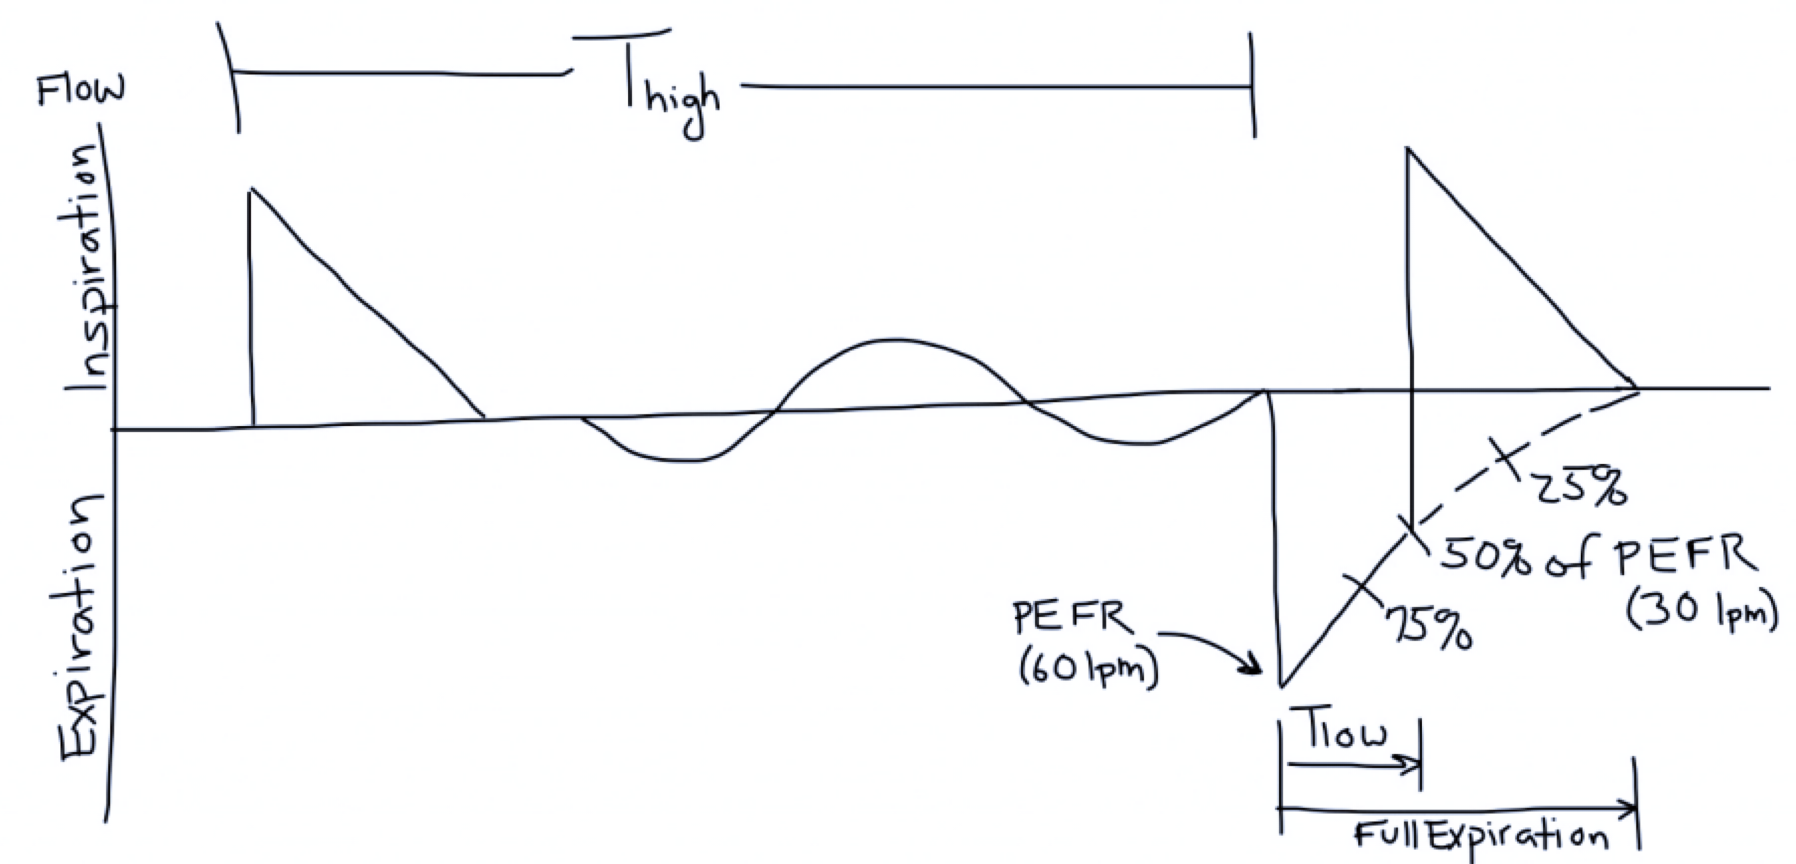 Flow
Thigh
Inspiration
Expiration
25%
50% of PEFR
(30 lpm)
75%
PEFR
(60 lpm)
Tlow
Full Expiration